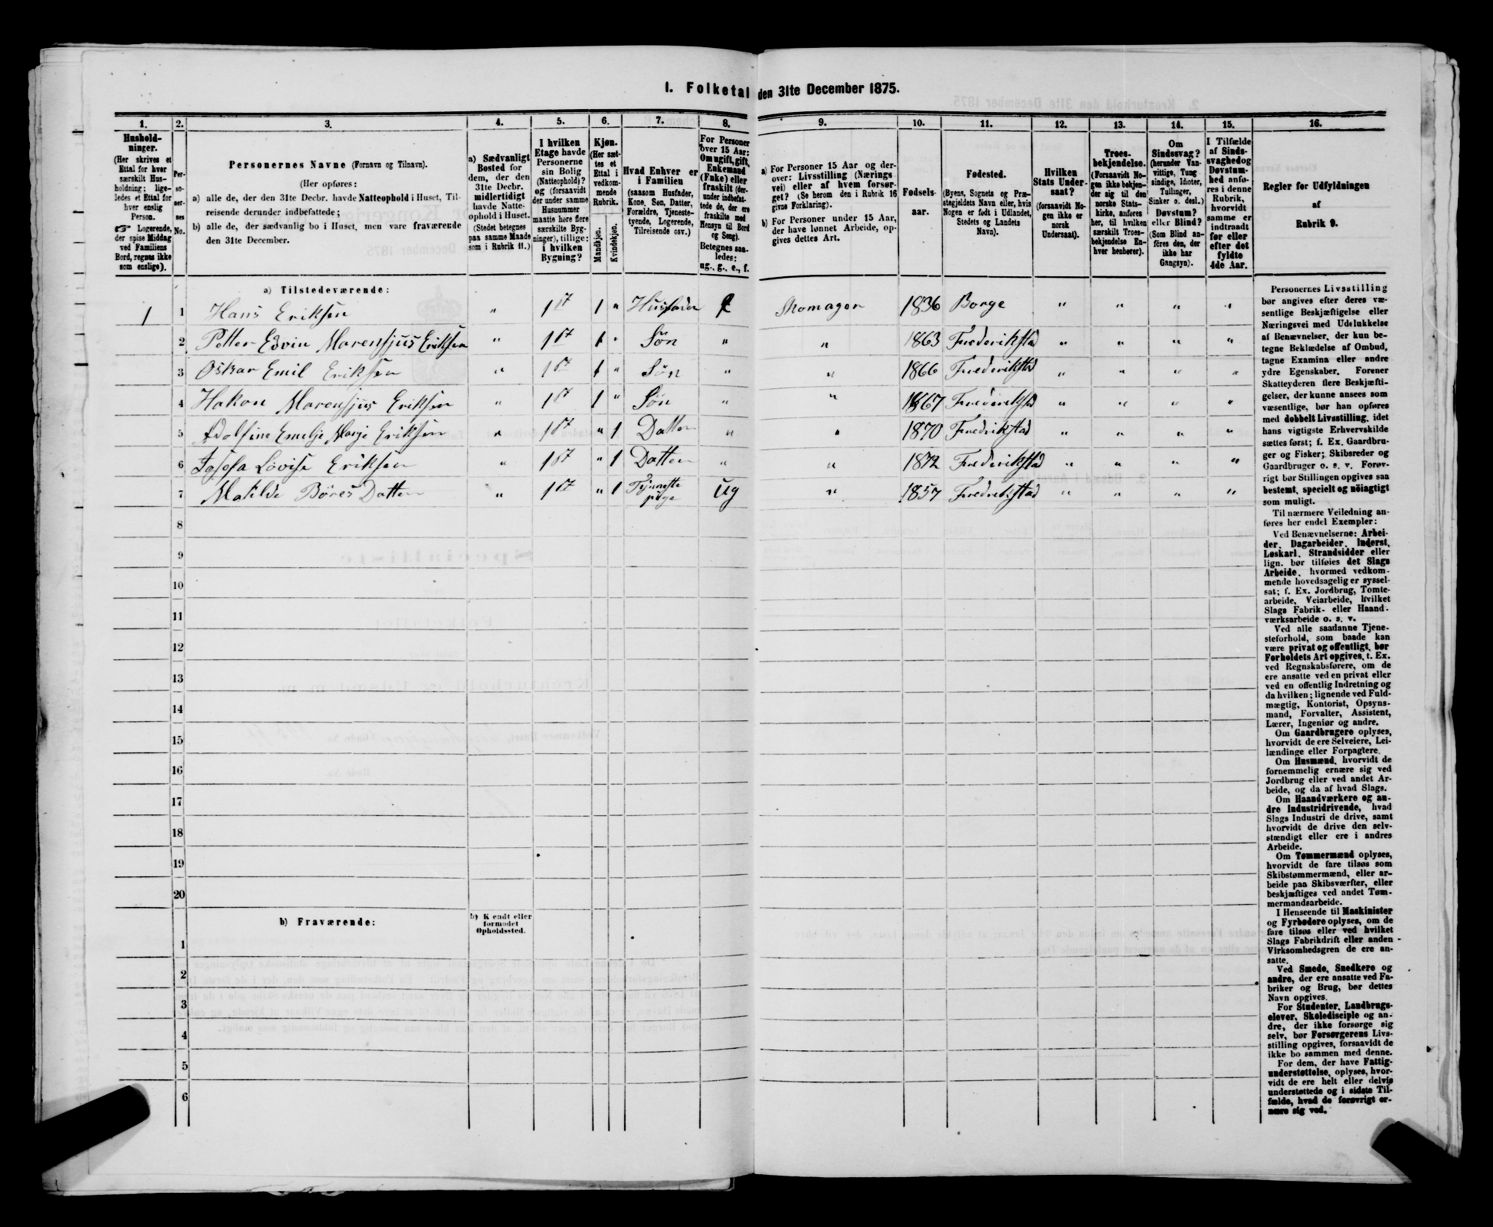 1. Folketal den 31te December 1875.
1. 2. 3. 4. 5. 6. 7. 8. 9. 10. 11. 12. 13. 14. 15. 16.
Hushold-
ninger.
(Her skrives et
Ettal for hver
særskilt Hus-
holdning; lige-
ledes et Ettal for
hver enslig
Person.
☞ Logerende,
der spise Middag
ved Familiens
Bord, regnes ikke
som enslige).
Per-
so-
ner-
nes
No.
Personernes Navne (Fornavn og Tilnavn).
(Her opføres:
a) alle de, der 31te Decbr. havde Natteophold i Huset, Til-
reisende derunder indbefattede;
b) alle de, der sædvanlig bo i Huset, men vare fraværende
den 31te December.
a) Sædvanligt
Bosted for
dem, der den
31te Decbr.
midlertidigt
havde Natte-
ophold i Huset.
(Stedet betegnes
paa samme Maade
som i Rubrik 11.)
I hvilken
Etage havde
Personerne
sin Bolig
(Natteophold)?
og (forsaavidt
der under samme
Husnummer
maatte høre flere
særskilte Byg-
ninger), tillige:
i hvilken
Bygning?
Kjøn.
(Her sæt-
tes et
Ettal i
vedkom-
mende
Rubrik.
Mandkjøn.
Kvindekjøn.
Hvad Enhver er
i Familien
(saasom Husfader,
Kone, Søn, Datter,
Forældre, Tjeneste-
tyende, Logerende,
Tilreisende osv.)
For Personer
over 15 Aar:
Om ugift, gift,
Enkemand
(Enke) eller
fraskilt (der-
under indbefat-
tede de, der ere
fraskilte med
Hensyn til Bord
og Seng).
Betegnes saa-
ledes:
ug., g., e., f.
a) For Personer 15 Aar og der-
over: Livsstilling (Nærings
vei) eller af hvem forsør-
get? (Se herom den i Rubrik 16
givne Forklaring).
b) For Personer under 15 Aar,
der have lønnet Arbeide, op-
gives dettes Art.
Fødsels-
aar.
Fødested.
(Byens, Sognets og Præ-
stegjeldets Navn eller, hvis
Nogen er født i Udlandet,
Stedets og Landets
Navn).
Hvilken
Stats Under-
saat?
(forsaavidt No-
gen ikke er
norsk
Undersaat).
Troes-
bekjendelse.
(Forsaavidt No-
gen ikke bekjen-
der sig til den
norske Stats-
kirke, anføres
her, til hvilken
særskilt Troes-
bekjendelse En-
hver henhører).
Om
Sindssvag?
(herunder Van-
vittige, Tung
sindige, Idioter,
Tullinger,
Sinker o. desl.)
Døvstum?
eller Blind?
(Som Blind an-
føres den, der
ikke har
Gangsyn).
I Tilfælde
af Sinds-
svaghedog
Døvstum-
hed anfø-
res i denne
Rubrik,
hvorvidt
samme er
indtraadt
før eller
efter det
fyldte
4de Aar.
Regler for Udfyldningen
af
Rubrik 9.
a) Tilstedeværende:
1 1 Hans Eriksen " 1 St 1 " Husfader e Skomager 1836 Borge " " " "
2 Petter Edvin Marensjius Eriksen " 1 St 1 " Søn " " 1863 Frederikstad " " " "
3 Oskar Emil Eriksen " 1 St 1 " Søn " " 1866 Frederikstad " " " "
4 Hakon Marensjius Eriksen " 1 St 1 " Søn " " 1867 Frederikstad " " " "
5 Adolfine Emelje Marje Eriksen " 1 St " 1 Datter " " 1870 Fredrikstad " " " "
6 Lovise Eriksen " 1 St " 1 Datter " " 1872 Frederikstad " " " "
7 Matilde Børes Datter " 1 St " 1 Tjeneste
pige Ug " 1857 Fredrikstad " " " "
8
9
10
11
12
13
14
15
16
17
18
19
20
b) Fraværende:
b) Kjendt eller
formodet
Opholdssted.
1
2
3
4
5
6
Personernes Livsstilling
bør angives efter deres væ-
sentlige Beskjæftigelse eller
Næringsvei med Udelukkelse
af Benævnelser, der kun be-
tegne Beklædelse af Ombud,
tagne Examina eller andre
ydre Egenskaber. Forener
Skatteyderen flere Beskjæfti-
gelser, der kunne ansees som
væsentlige, bør han opføres
med dobbelt Livsstilling, idet
hans vigtigste Erhvervskilde
sættes først; f. Ex. Gaardbru-
ger og Fisker; Skibsreder og
Gaardbruger o. s. v. Forøv-
rigt bør Stillingen opgives saa
bestemt, specielt og nöiagtigt
som muligt.
Til nærmere Veiledning an-
føres her endel Exempler:
Ved Benævnelserne: Arbei-
der, Dagarbeider, Inderst,
Løskarl, Strandsidder eller
lign. bør tilføies det Slags
Arbeide, hvormed vedkom-
mende hovedsagelig er syssel-
sat; f. Ex. Jordbrug, Tomte-
arbeide, Veiarbeide, hvilket
Slags Fabrik- eller Haand-
værksarbeide o. s. v.
Ved alle saadanne Tjene-
steforhold, som baade kan
være privat og offentligt, bør
Forholdets Art opgives, t. Ex.
ved Regnskabsførere, om de
ere ansatte ved en privat eller
ved en offentlig Indretning og
da hvilken; lignende ved Fuld-
mægtig, Kontorist, Opsyns-
mand, Forvalter, Assistent,
Lærer, Ingeniør og andre.
Om Gaardbrugere oplyses,
hvorvidt de ere Selveiere, Lei-
lændinge eller Forpagtere.
Om Husmænd, hvorvidt de
fornemmelig ernære sig ved
Jordbrug eller ved andet Ar-
beide, og da af hvad Slags.
Om Haandværkere og an-
dre Industridrivende, hvad
Slags Industri de drive, samt
hvorvidt de drive den selv-
stændigt eller ere i andres
Arbeide.
Om Tømmermænd oplyses,
hvorvidt de fare tilsøs som
Skibstømmermænd, eller ar-
beide paa Skibsværfter, eller
beskjæftiges ved andet Tøm-
mermandsarbeide.
I Henseende til Maskinister
og Fyrbødere oplyses, om de
fare tilsøs eller ved hvilket
Slags Fabrikdrift eller anden
Virksomhedsgren de ere an-
satte.
Ved Smede, Snedkere og
andre, der ere ansatte ved Fa-
briker og Brug, bør dettes
Navn opgives.
For Studenter, Landbrugs-
elever, Skoledisciple og an-
dre, der ikke forsørge sig
selv, bør Forsørgerens Livs-
stilling opgives, forsaavidt de
ikke bo sammen med denne.
For dem, der have Fattig-
understøttelse, oplyses, hvor-
vidt de ere helt eller delvis
understøttede og i sidste Til-
fælde, hvad de forøvrigt er-
nære sig ved.